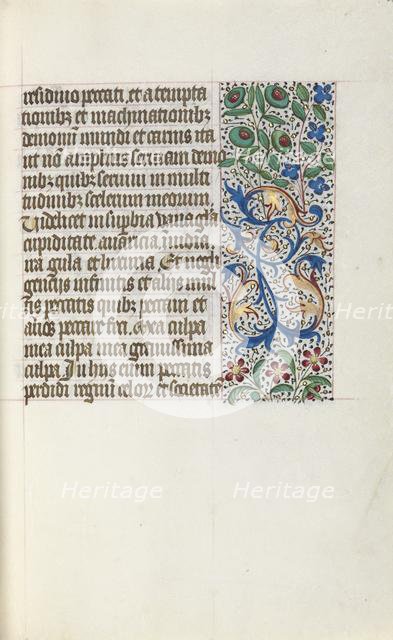 residuo peccati, et a tempta
tionibz et machinationibz
demonū mundi et carnis ita
ut nō amplius seruiam demo
nibz quibz seruiui in multi
tudinibz scelerum meorum,
Videlicet in supbia vana glīa
cupiditate auaricia, inuidia,
ira gula et luxuria. Et negli
gencijs infinitis et alijs mul
tis peccatis quibz peccaui et
alios peccare feci, mea culpa
mea culpa mea grauissima
culpa. In hijs enim peccatis
perdidi regnū celorz et societatē
Heritage
Heritage
Heritage
Heritage
Heritage